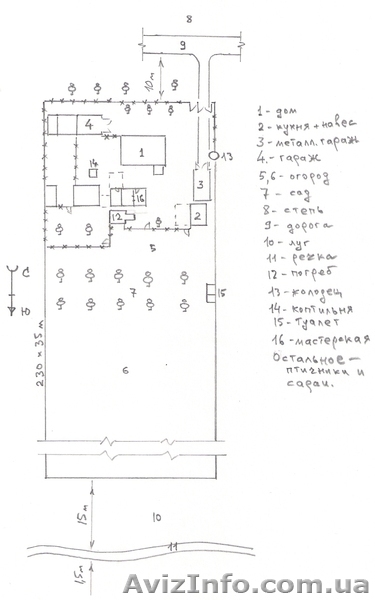 8
9
10 м
4
1
14
3
13
16
12
2
5
С
Ю
7
15
230 × 35 м
6
15 м
10
11
45 м
1 - дом
2 - кухня + навес
3 - металл. гараж
4. - гараж
5,6 - огород
7 - сад
8 - степь
9 - дорога
10 - луг
11 - речка
12 - погреб
13 - колодец
14 - коптильня
15 - туалет
16 - мастерская
Остальное —
птичники и
сараи.
AvizInfo.com.ua